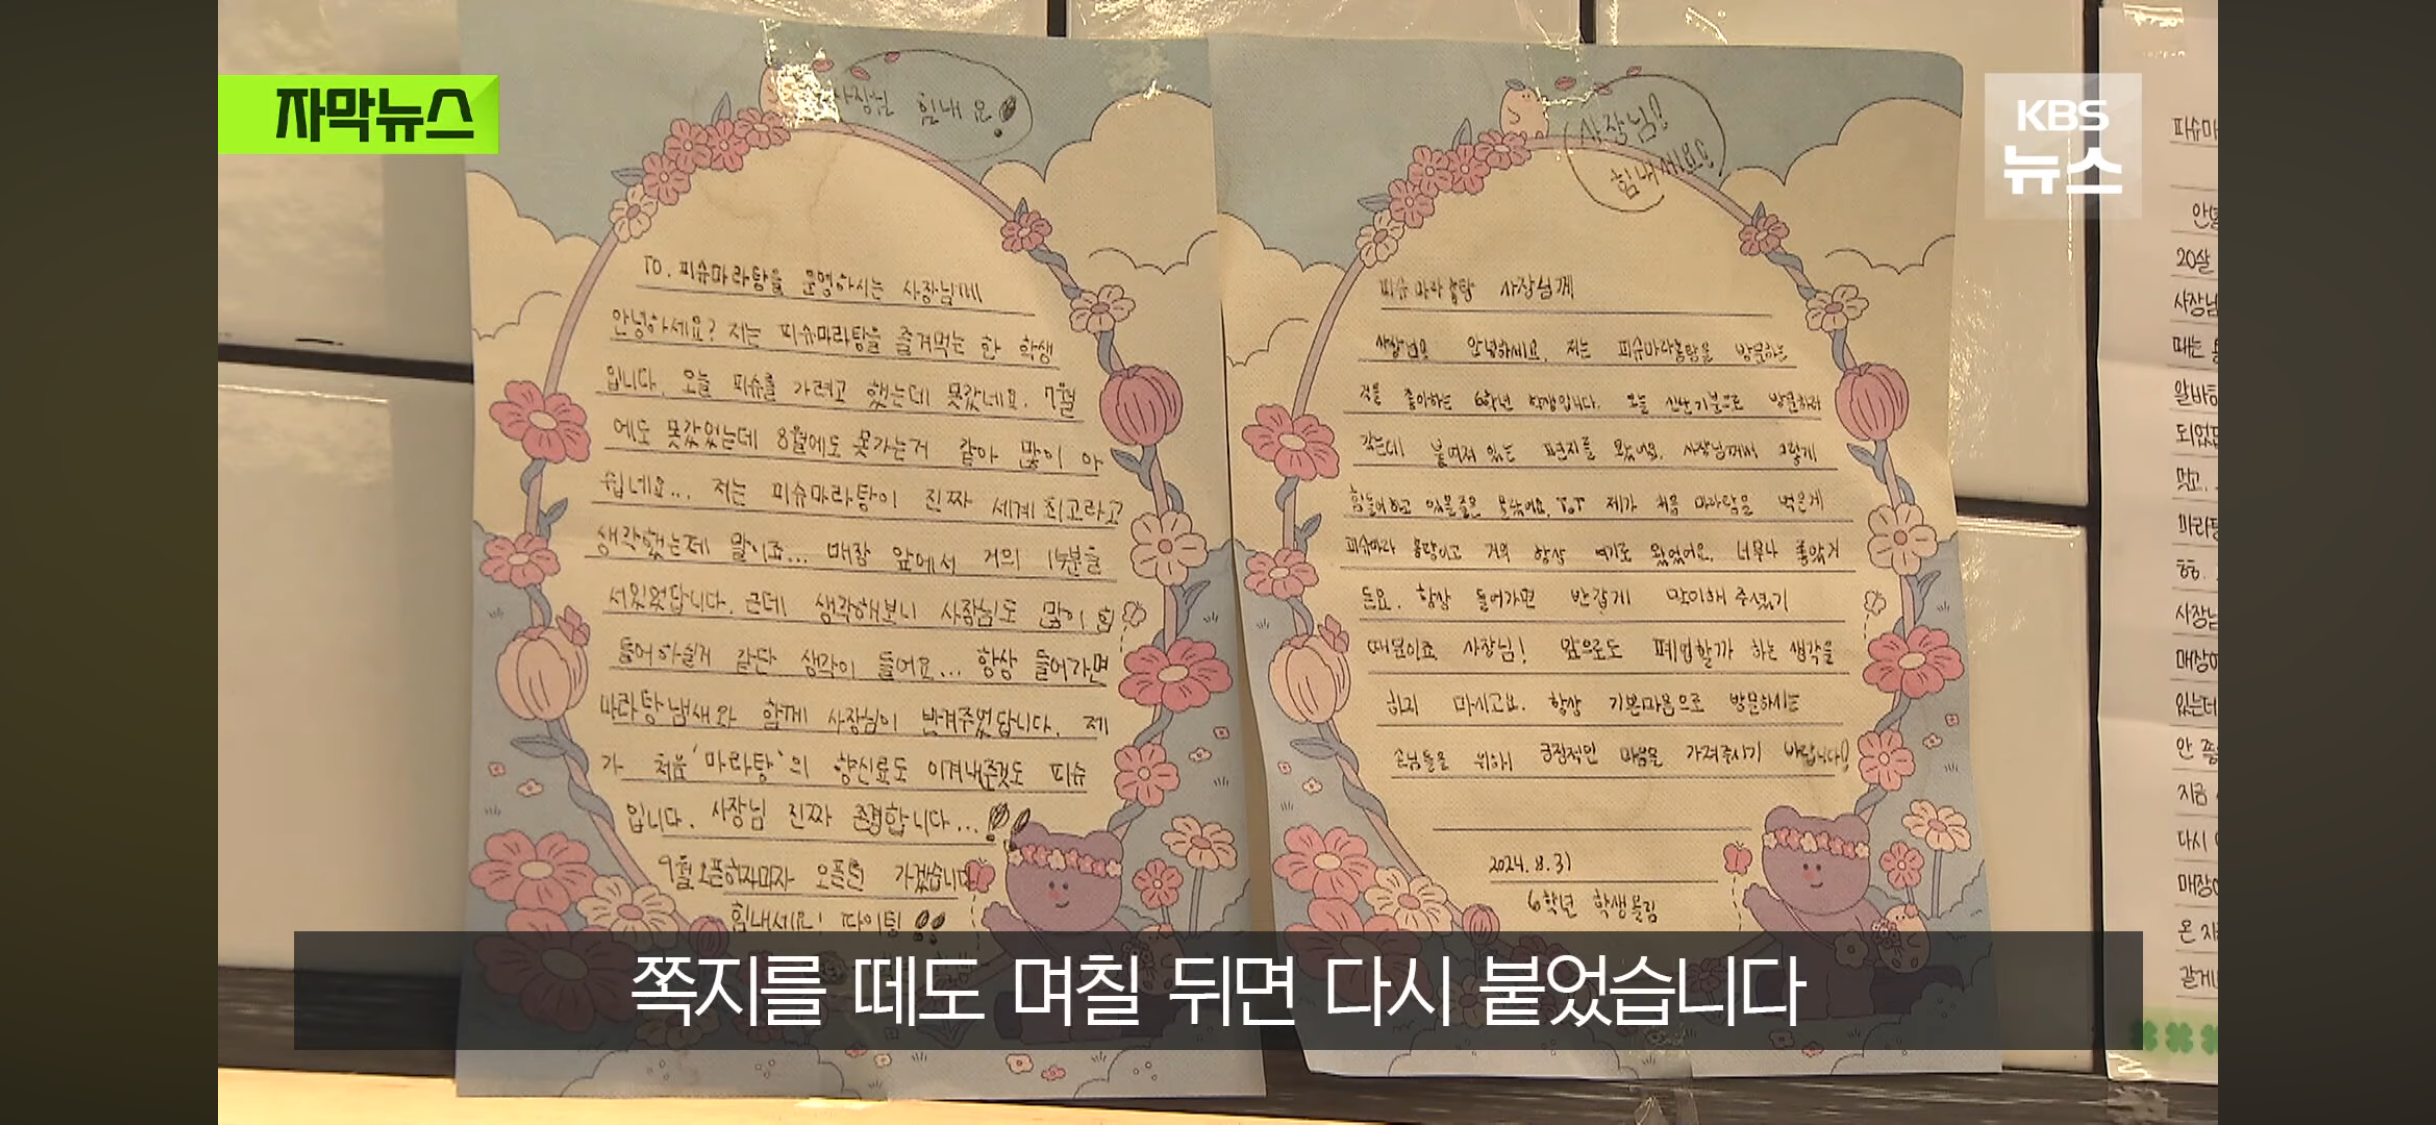 자막뉴스
KBS
뉴스
사장님 힘내요!
TO. 피슈마라탕을 운영하시는 사장님께
안녕하세요? 저는 피슈마라탕을 즐겨먹는 한 학생
입니다. 오늘 피슈를 가려고 했는데 못갔네요. 7월
에도 못갔었는데 8월에도 못가는거 같아 많이 아
쉽네요... 저는 피슈마라탕이 진짜 세계 최고라고
생각했는데 말이죠... 매장 앞에서 거의 15분을
서있었답니다. 근데 생각해보니 사장님도 많이 힘
들어하실거 같단 생각이 들어요... 항상 들어가면
마라탕냄새와 함께 사장님이 반겨주었답니다. 제
가 처음 '마라탕'의 향신료도 이겨내준것도 피슈
입니다. 사장님 진짜 존경합니다...!
9월 오픈하자마자 오픈런 가겠습니다
힘내세요! 파이팅!!
사장님!
힘내세요!
피슈마라홍탕 사장님께
사장님 안녕하세요. 저는 피슈마라홍탕을 방문하는
것을 좋아하는 6학년 학생입니다. 오늘 신난기분으로 방문하러
갔는데 붙여져 있는 편지를 봤어요. 사장님께서 그렇게
힘들어하고 있을줄은 몰랐어요. ToT 제가 처음 마라탕을 먹은게
피슈마라 홍탕이고 거의 항상 여기로 왔었어요. 너무나 좋았거
든요. 항상 들어가면 반갑게 맞이해 주셨기
때문이죠 사장님! 앞으로도 폐업할까 하는 생각을
하지 마시고요. 항상 기본마음으로 방문하시는
손님들을 위해 긍정적인 마음을 가져주시기 바랍니다!
2024. 8. 31
6학년 학생올림
피슈마
20살
사장님
때는
알바
되었
먹고
마라탕
사장님
매장
있는데
안
지금
다시
매장
온
쪽지를 떼도 며칠 뒤면 다시 붙었습니다